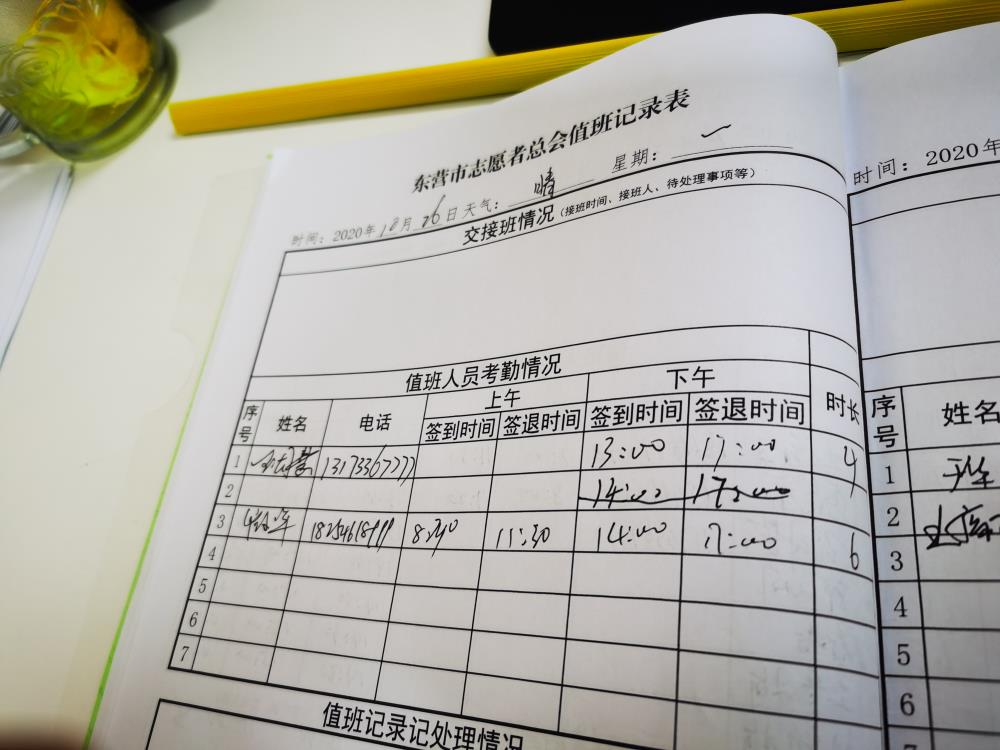 东营市志愿者总会值班记录表
时间：2020年10月26日天气：晴 星期：一
交接班情况（接班时间、接班人、待处理事项等）
值班人员考勤情况
序号 姓名 电话 上午 下午 时长
签到时间 签退时间 签到时间 签退时间
1 13173367777 13:00 17:00 4
2 14:00 17:00
3 18254618999 8:30 11:30 14:00 17:00 6
4
5
6
7
值班记录记处理情况
时间：2020年
序号 姓名
1
2
3
4
5
6